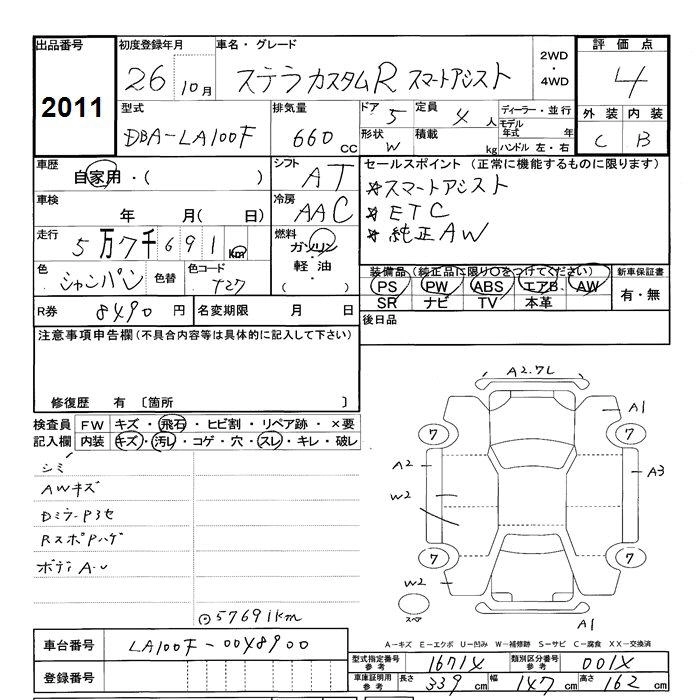 出品番号 初度登録年月 車名・グレード 評価点
2011 26 10月 ステラカスタムR スマートアシスト 2WD・4WD 4
型式 排気量 ドア 5 定員 4人 ディーラー・並行 外装 内装
DBA-LA100F 660 CC 形状 W 積載 kg モデル年式 年 ハンドル 左・右 C B
車歴 シフト セールスポイント (正常に機能するものに限ります)
自家用・( ) AT ☆スマートアシスト
車検 冷房 ☆ETC
年 月( 日) AAC ☆純正AW
走行 5万7千691km 燃料 ガソリン・軽油・( )
色 シャンパン 色替 色コード T27
装備品 (純正品に限り○をつけてください) 新車保証書
PS PW ABS エアB AW 有・無
SR ナビ TV 本革
R券 8490円 名変期限 月 日 後日品
注意事項申告欄 (不具合内容等は具体的に記入して下さい)
修復歴 有 〔箇所 〕
検査員記入欄 FW キズ・飛石・ヒビ割・リペア跡・×要
内装 キズ・汚レ・コゲ・穴・スレ・キレ・破レ
シミ
AWキズ
Dミラ-P3セ
RスポPハゲ
ボディA・U
⊙57691km
A2.7L
A1
7 7
A2 A3
W2
7 7
W2
スペア
A1
A-キズ E-エクボ U-凹み W-補修跡 S-サビ C-腐食 XX-交換済
車台番号 LA100F-00X8900 型式指定番号 参考 1671X 類別区分番号 参考 001X
登録番号 車庫証明用 参考 長さ 339cm 幅 147cm 高さ 162cm